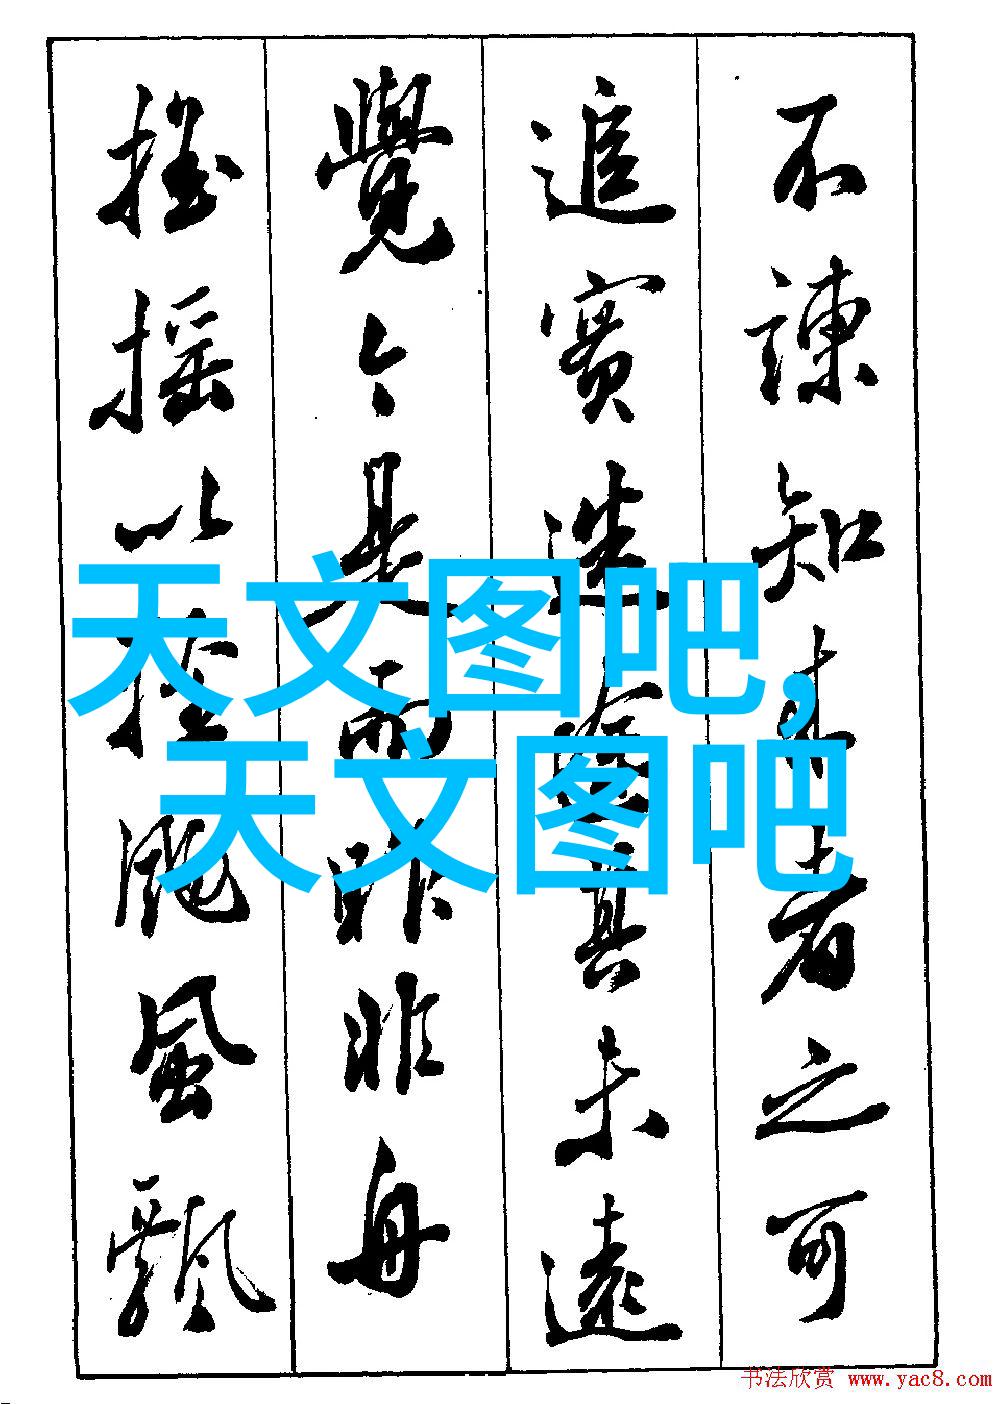 不諫知来者之可
追實迷途其未遠
覺今是而昨非舟
摇摇以輕颺風飄
天文图吧，
天文图吧
书法欣赏 www.yac8.com